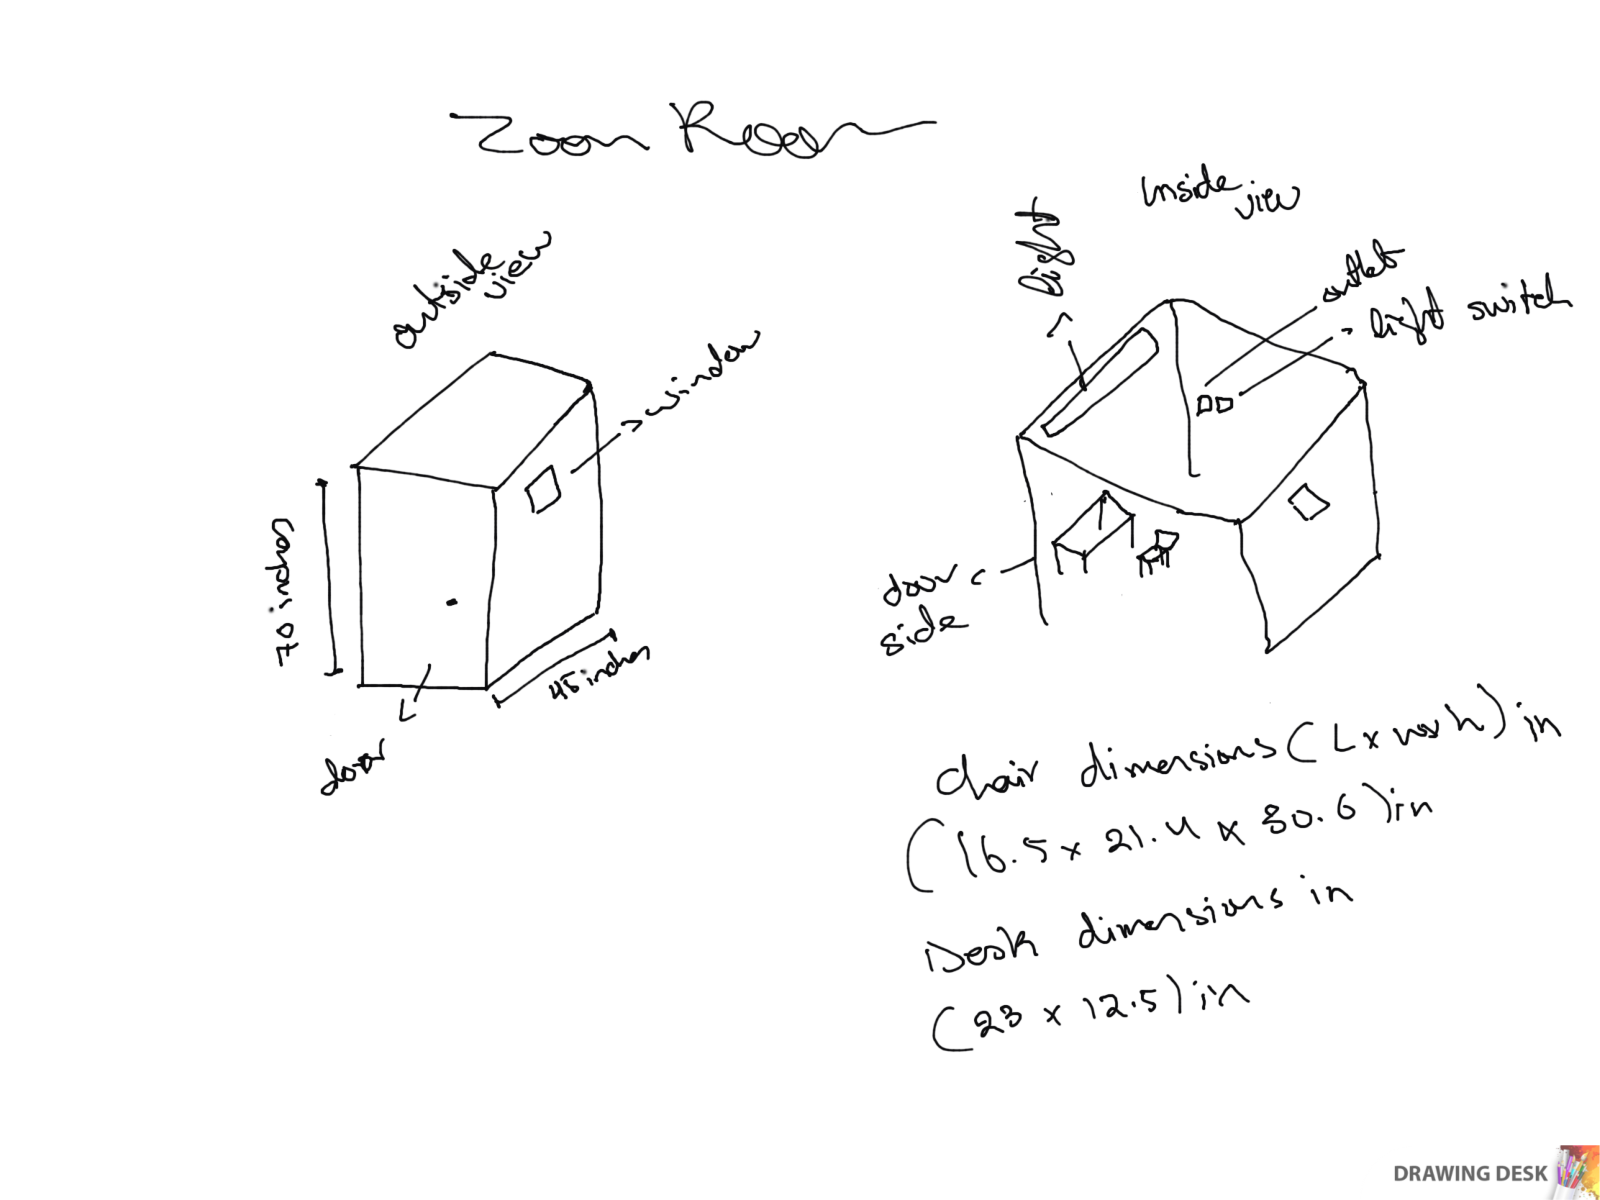 Zoom Room
outside
view
window
70 inches
45 inches
door
Inside
view
light
outlet
light switch
door
side
Chair dimensions (L x w x h) in
(16.5 x 21.4 x 30.6) in
Desk dimensions in
(23 x 12.5) in
DRAWING DESK